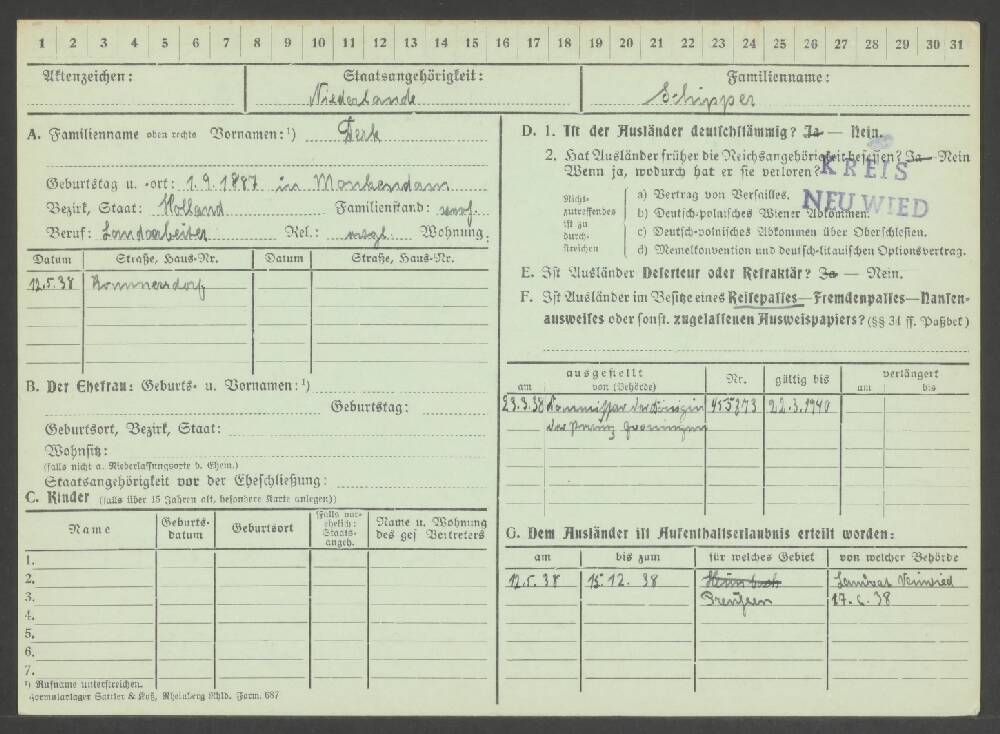 1 2 3 4 5 6 7 8 9 10 11 12 13 14 15 16 17 18 19 20 21 22 23 24 25 26 27 28 29 30 31
Aktenzeichen:
Staatsangehörigkeit:
Niederlande
Familienname:
Schipper
A. Familienname oben rechts Vornamen:¹) Derk
Geburtstag u. -ort: 1.9.1887 in Monkendam
Bezirk, Staat: Holland Familienstand: verh.
Beruf: Landarbeiter Rel.: evgl. Wohnung:
Datum Straße, Haus-Nr. Datum Straße, Haus-Nr.
12.5.38 Rommersdorf
B. Der Ehefrau: Geburts- u. Vornamen:¹)
Geburtstag:
Geburtsort, Bezirk, Staat:
Wohnsitz:
(falls nicht a. Niederlassungsorte d. Ehem.)
Staatsangehörigkeit vor der Eheschließung:
C. Kinder (falls über 15 Jahren alt, besondere Karte anlegen))
Name
Geburts-
datum
Geburtsort
Falls vor-
ehelich:
Staats-
angeh.
Name u. Wohnung
des ges. Vertreters
1.
2.
3.
4.
5.
6.
7.
¹) Rufname unterstreichen.
Formularlager Sattler & Koß, Rheinberg Rhld. Form. 687
D. 1. Ist der Ausländer deutschstämmig? Ja — Nein.
2. Hat Ausländer früher die Reichsangehörigkeit besessen? Ja — Nein
Wenn ja, wodurch hat er sie verloren?
KREIS
NEUWIED
Nicht-
zutreffendes
ist zu
durch-
streichen
a) Vertrag von Versailles.
b) Deutsch-polnisches Wiener Abkommen.
c) Deutsch-polnisches Abkommen über Oberschlesien.
d) Memelkonvention und deutsch-litauischen Optionsvertrag.
E. Ist Ausländer Deserteur oder Refraktär? Ja — Nein.
F. Ist Ausländer im Besitze eines Reisepasses—Fremdenpasses—Nansen-
ausweises oder sonst. zugelassenen Ausweispapiers? (§§ 34 ff. Paßbek)
ausgestellt
am von (Behörde)
Nr.
gültig bis
verlängert
am bis
23.3.38 Kommissar der Königin 455873 22.3.1940
der Provinz Groningen
G. Dem Ausländer ist Aufenthaltserlaubnis erteilt worden:
am bis zum für welches Gebiet von welcher Behörde
12.5.38 15.12.38 Landrat Neuwied
Preußen 17.6.38